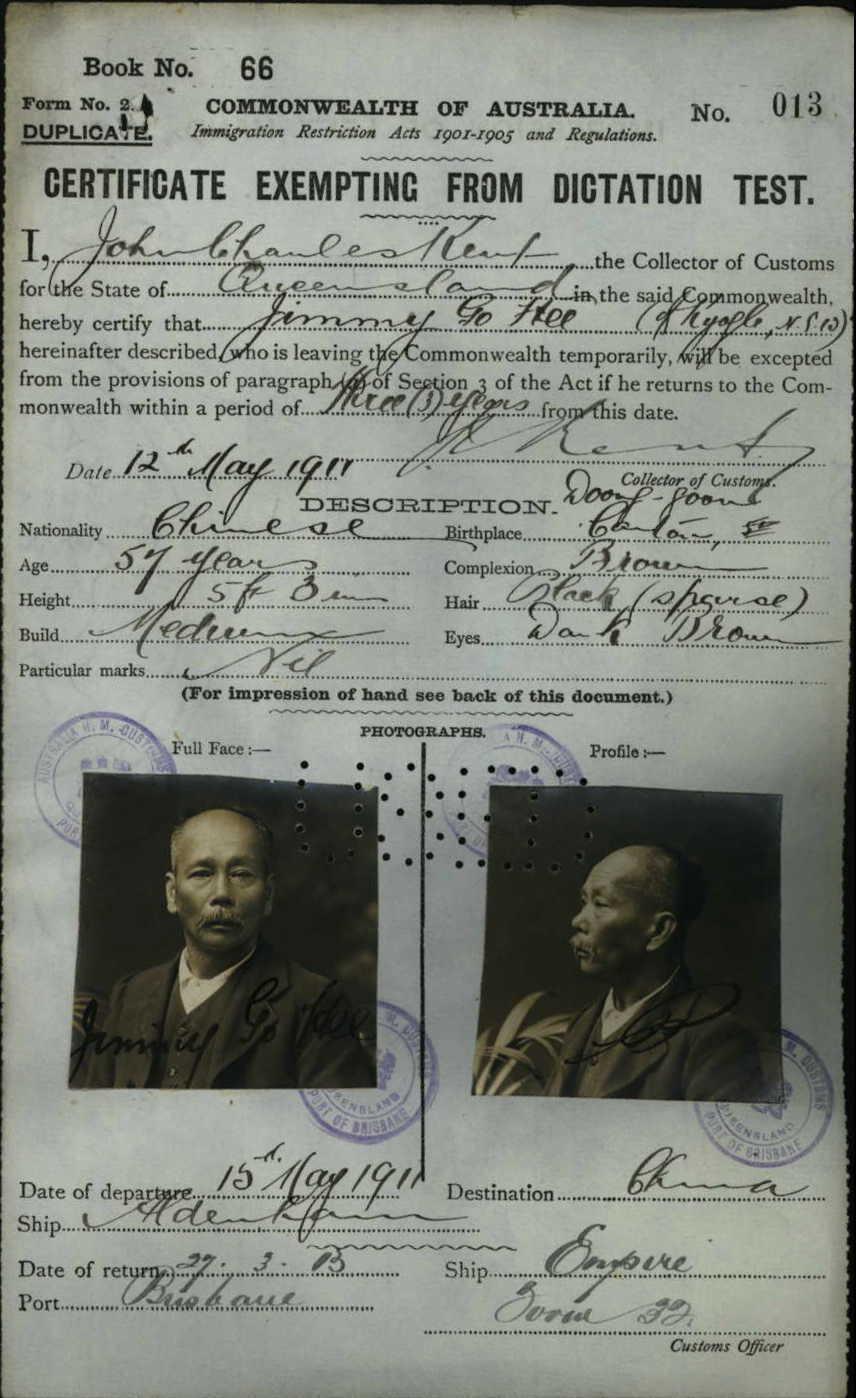 Book No. 66
Form No. 21. COMMONWEALTH OF AUSTRALIA. No. 013
DUPLICATE. Immigration Restriction Acts 1901-1905 and Regulations.
CERTIFICATE EXEMPTING FROM DICTATION TEST.
I, John Charles Kent the Collector of Customs
for the State of Queensland in the said Commonwealth,
hereby certify that Jimmy Go Hee (of Kyogle, N.S.W)
hereinafter described, who is leaving the Commonwealth temporarily, will be excepted
from the provisions of paragraph (a) of Section 3 of the Act if he returns to the Com-
monwealth within a period of Three (3) years from this date.
Kent
Date 12th May 1911 Collector of Customs.
DESCRIPTION.
Nationality Chinese Birthplace Canton,
Age 57 years Complexion Brown
Height 5 ft 3 in Hair Black (sparse)
Build Medium Eyes Dark Brown
Particular marks Nil
(For impression of hand see back of this document.)
PHOTOGRAPHS.
Full Face :— Profile :—
AUSTRALIA H. M. CUSTOMS
Jimmy Go Hee
QUEENSLAND
PORT OF BRISBANE
M. CUSTOMS
QUEENSLAND
PORT OF BRISBANE
Date of departure 15th May 1911 Destination China
Ship Aldenham
Date of return 27. 3. 13 Ship Empire
Port Brisbane
Customs Officer